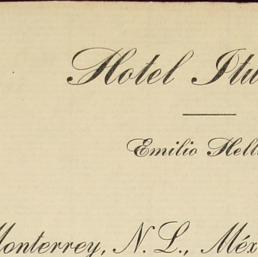 Hotel Itu
Emilio Hell
Monterrey, N. L., Méx